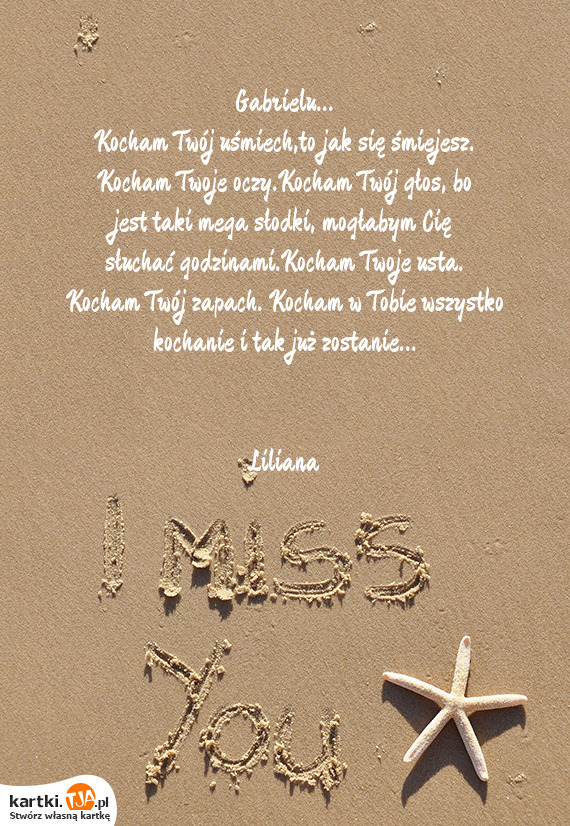 Gabrielu...
Kocham Twój uśmiech,to jak się śmiejesz.
Kocham Twoje oczy.Kocham Twój głos, bo
jest taki mega słodki, mogłabym Cię
słuchać godzinami.Kocham Twoje usta.
Kocham Twój zapach. Kocham w Tobie wszystko
kochanie i tak już zostanie...
Liliana
I miss
You
kartki.TJA.pl
Stwórz własną kartkę